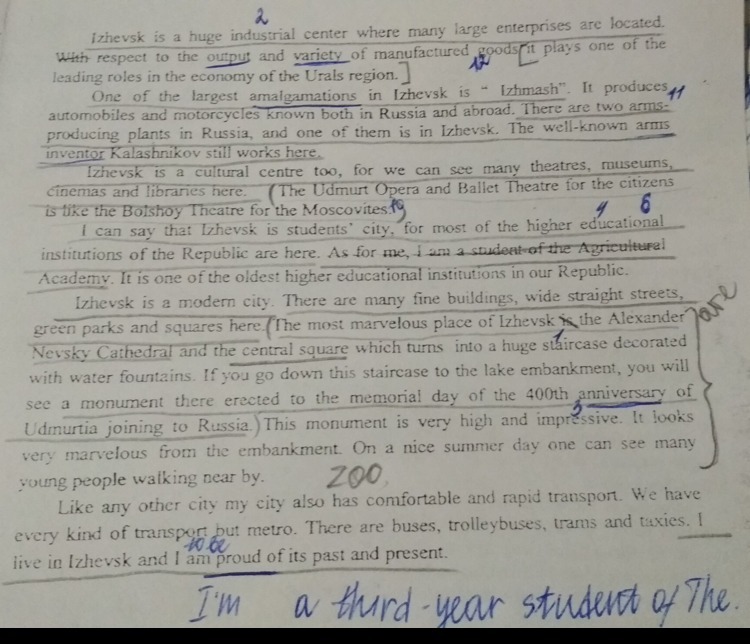 2
Izhevsk is a huge industrial center where many large enterprises are located.
With respect to the output and variety of manufactured goods, it plays one of the
12
leading roles in the economy of the Urals region.]
One of the largest amalgamations in Izhevsk is " Izhmash". It produces
11
automobiles and motorcycles known both in Russia and abroad. There are two arms-
producing plants in Russia, and one of them is in Izhevsk. The well-known arms
inventor Kalashnikov still works here.
Izhevsk is a cultural centre too, for we can see many theatres, museums,
cinemas and libraries here. (The Udmurt Opera and Ballet Theatre for the citizens
is like the Bolshoy Theatre for the Moscovites.)
6
I can say that Izhevsk is students' city, for most of the higher educational
institutions of the Republic are here. As for me, I am a student of the Agricultural
Academy. It is one of the oldest higher educational institutions in our Republic.
Izhevsk is a modern city. There are many fine buildings, wide straight streets,
green parks and squares here. (The most marvelous place of Izhevsk is the Alexander
are
Nevsky Cathedral and the central square which turns into a huge staircase decorated
with water fountains. If you go down this staircase to the lake embankment, you will
see a monument there erected to the memorial day of the 400th anniversary of
Udmurtia joining to Russia.) This monument is very high and impressive. It looks
very marvelous from the embankment. On a nice summer day one can see many
young people walking near by.
ZOO
Like any other city my city also has comfortable and rapid transport. We have
every kind of transport but metro. There are buses, trolleybuses, trams and taxies. I
to be
live in Izhevsk and I am proud of its past and present.
I'm a third-year student of The.